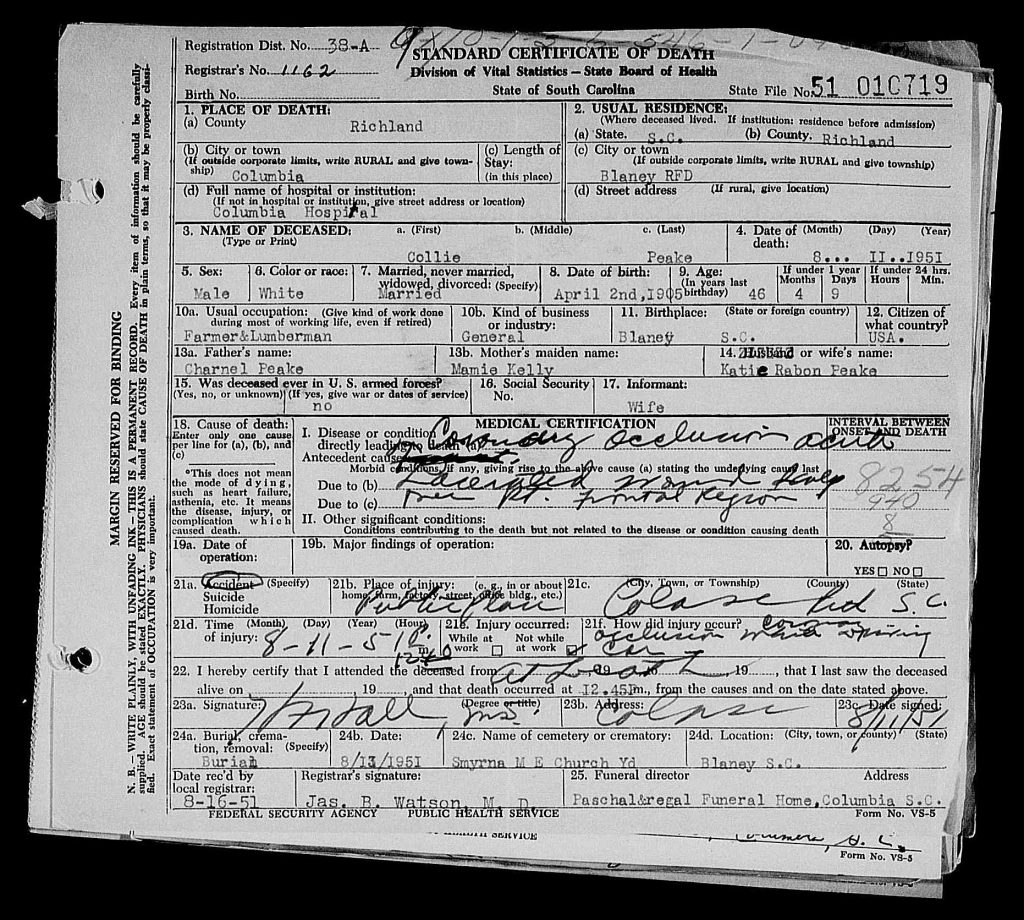 Registration Dist. No. 38-A
STANDARD CERTIFICATE OF DEATH
Registrar's No. 1162
Division of Vital Statistics — State Board of Health
Birth No.
State of South Carolina
State File No. 51 010719
1. PLACE OF DEATH:
(a) County Richland
2. USUAL RESIDENCE:
(Where deceased lived. If institution: residence before admission)
(a) State. S.C. (b) County. Richland
(b) City or town
(If outside corporate limits, write RURAL and give township) Columbia
(c) Length of Stay:
(in this place)
(c) City or town
(If outside corporate limits, write RURAL and give township)
Blaney RFD
(d) Full name of hospital or institution:
(If not in hospital or institution, give street address or location)
Columbia Hospital
(d) Street address (If rural, give location)
3. NAME OF DECEASED: a. (First) b. (Middle) c. (Last)
(Type or Print) Collie Peake
4. Date of (Month) (Day) (Year)
death: 8... II..1951
5. Sex: Male
6. Color or race: White
7. Married, never married, widowed, divorced: (Specify) Married
8. Date of birth: April 2nd,1905
9. Age: (In years last birthday) 46
If under 1 year Months 4 Days 9
If under 24 hrs. Hours Min.
10a. Usual occupation: (Give kind of work done during most of working life, even if retired)
Farmer&Lumberman
10b. Kind of business or industry: General
11. Birthplace: (State or foreign country) Blaney S.C.
12. Citizen of what country? USA.
13a. Father's name: Charnel Peake
13b. Mother's maiden name: Mamie Kelly
14. Husband or wife's name: Katie Rabon Peake
15. Was deceased ever in U. S. armed forces?
(Yes, no, or unknown) (If yes, give war or dates of service) no
16. Social Security No.
17. Informant: Wife
18. Cause of death: Enter only one cause per line for (a), (b), and (c)
*This does not mean the mode of dying, such as heart failure, asthenia, etc. It means the disease, injury, or complication which caused death.
MEDICAL CERTIFICATION
INTERVAL BETWEEN ONSET AND DEATH
I. Disease or condition directly leading to death (a) Coronary occlusion acute
Antecedent causes
Morbid conditions, if any, giving rise to the above cause (a) stating the underlying cause last
Due to (b) Lacerated wound scalp
Due to (c) over Rt. Frontal Region
8254
940
8
II. Other significant conditions:
Conditions contributing to the death but not related to the disease or condition causing death
19a. Date of operation:
19b. Major findings of operation:
20. Autopsy?
YES NO
21a. Accident (Specify)
Suicide
Homicide
21b. Place of injury: (e. g., in or about home, farm, factory, street, office bldg., etc.)
Public Place
21c. (City, Town, or Township) (County) (State)
Cola SC Rd S.C.
21d. Time (Month) (Day) (Year) (Hour)
of injury: 8-11-51
21e. Injury occurred:
While at work Not while at work
21f. How did injury occur? Coronary
occlusion while driving
Car
22. I hereby certify that I attended the deceased from at Death 19, 19, that I last saw the deceased
alive on, 19, and that death occurred at 12.45Pm., from the causes and on the date stated above.
23a. Signature: (Degree or title) M.D.
23b. Address: Cola SC
23c. Date signed: 8/11/51
24a. Burial, cremation, removal: (Specify) Burial
24b. Date: 8/13/1951
24c. Name of cemetery or crematory: Smyrna M E Church Yd
24d. Location: (City, town, or county) (State) Blaney S.C.
Date rec'd by local registrar: 8-16-51
Registrar's signature: Jas. B. Watson, M. D.
25. Funeral director Address
Paschal&regal Funeral Home,Columbia S.C.
FEDERAL SECURITY AGENCY PUBLIC HEALTH SERVICE
Form No. VS-5
HEALTH SERVICE
Form No. VS-5
MARGIN RESERVED FOR BINDING
N. B. — WRITE PLAINLY, WITH UNFADING INK — THIS IS A PERMANENT RECORD. Every item of information should be carefully
supplied. AGE should be stated EXACTLY. PHYSICIANS should state CAUSE OF DEATH in plain terms, so that it may be properly classified. Exact statement of OCCUPATION is very important.